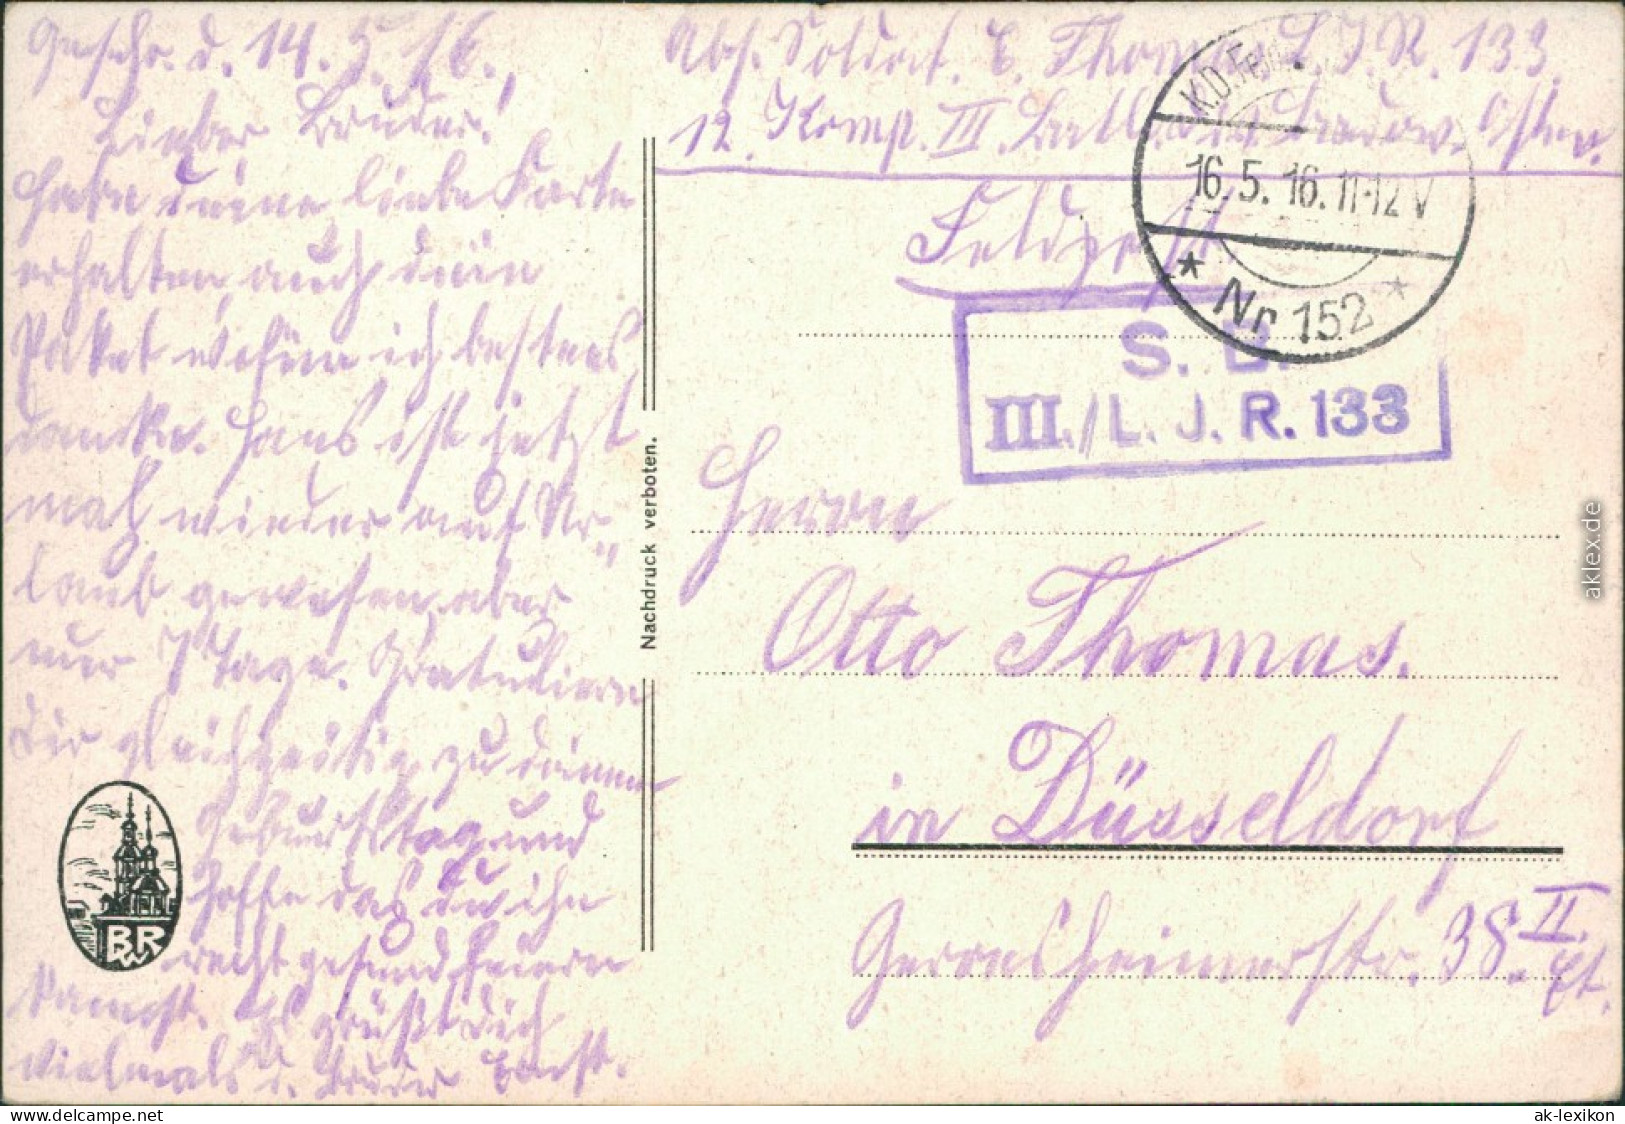 Geschr. d. 14.5.16.
Lieber Bruder!
Habe deine liebe Karte
erhalten, auch dein
Paket wofür ich bestens
danke. Hans ist jetzt
mal wieder auf Ur-
laub gewesen, aber
nur 7 Tage. Gratuliere
Dir gleichzeitig zu deinem
Geburtstag und
hoffe das du ihn
recht gesund feiern
kannst. Es grüßt dich
vielmals d. Bruder Ernst.
BR
W
Nachdruck verboten.
Abs. Soldat. E. Thomas L.I.R. 133.
12. Komp. III. Batl. Osten.
Feldpost
K.D. Feld
16.5.16. 11-12 V
* Nr. 152 *
S. B.
III./L. J. R. 133
Herrn
Otto Thomas.
in Düsseldorf
Gerresheimerstr. 38. II. Et.
aklex.de
delcampe.net
ak-lexikon